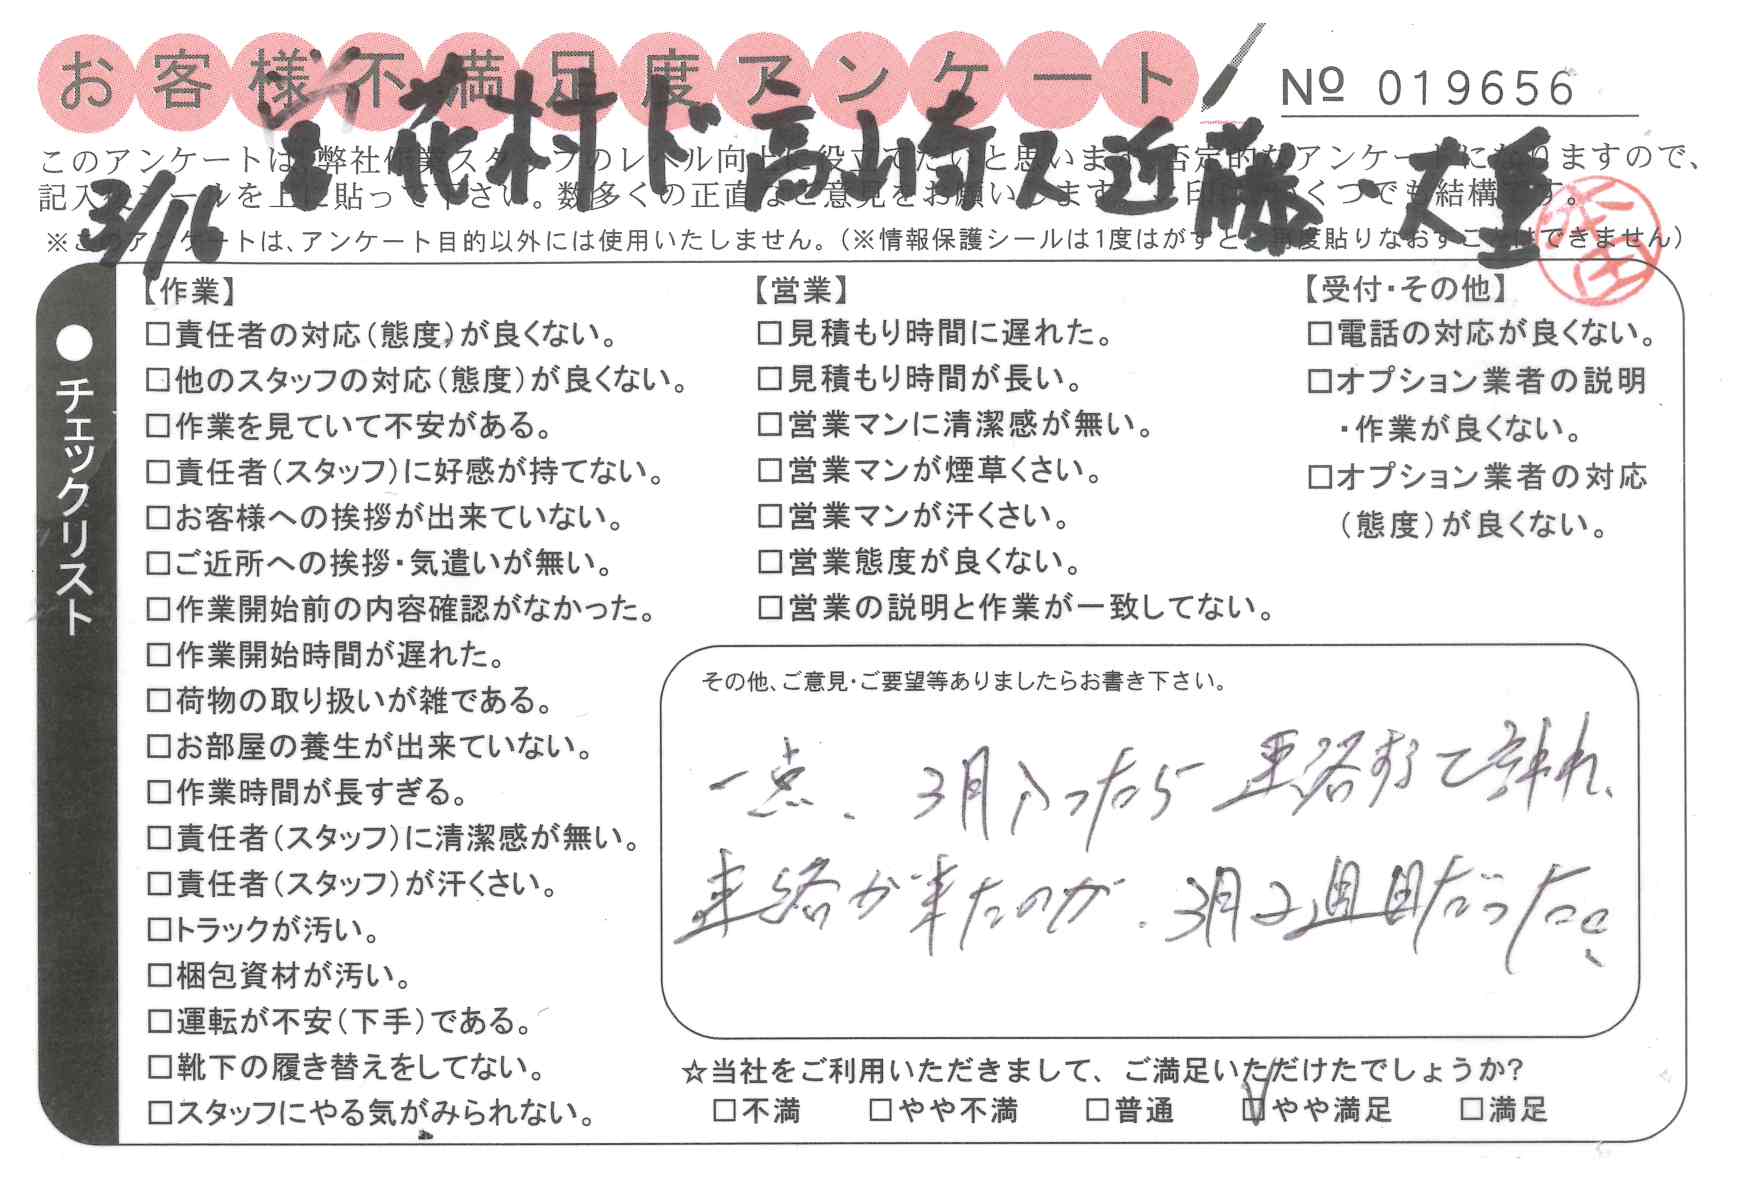 お客様不満足度アンケート
№ 019656
花村ド高崎ス近藤、大重
3/16
このアンケートは、弊社作業スタッフのレベル向上に役立てたいと思います。否定的なアンケートになりますので、
記入後シールを上に貼って下さい。数多くの正直なご意見をお願いします。
※このアンケートは、アンケート目的以外には使用いたしません。(※情報保護シールは1度はがすと、再度貼りなおすことはできません)
●チェックリスト
【作業】
□責任者の対応(態度)が良くない。
□他のスタッフの対応(態度)が良くない。
□作業を見ていて不安がある。
□責任者(スタッフ)に好感が持てない。
□お客様への挨拶が出来ていない。
□ご近所への挨拶・気遣いが無い。
□作業開始前の内容確認がなかった。
□作業開始時間が遅れた。
□荷物の取り扱いが雑である。
□お部屋の養生が出来ていない。
□作業時間が長すぎる。
□責任者(スタッフ)に清潔感が無い。
□責任者(スタッフ)が汗くさい。
□トラックが汚い。
□梱包資材が汚い。
□運転が不安(下手)である。
□靴下の履き替えをしてない。
□スタッフにやる気がみられない。
【営業】
□見積もり時間に遅れた。
□見積もり時間が長い。
□営業マンに清潔感が無い。
□営業マンが煙草くさい。
□営業マンが汗くさい。
□営業態度が良くない。
□営業の説明と作業が一致してない。
【受付・その他】
□電話の対応が良くない。
□オプション業者の説明
・作業が良くない。
□オプション業者の対応
(態度)が良くない。
その他、ご意見・ご要望等ありましたらお書き下さい。
一点、3月入ったら連絡すると言われ、
連絡が来たのが、3月2週目だった。
☆当社をご利用いただきまして、ご満足いただけたでしょうか?
□不満 □やや不満 □普通 ☑やや満足 □満足